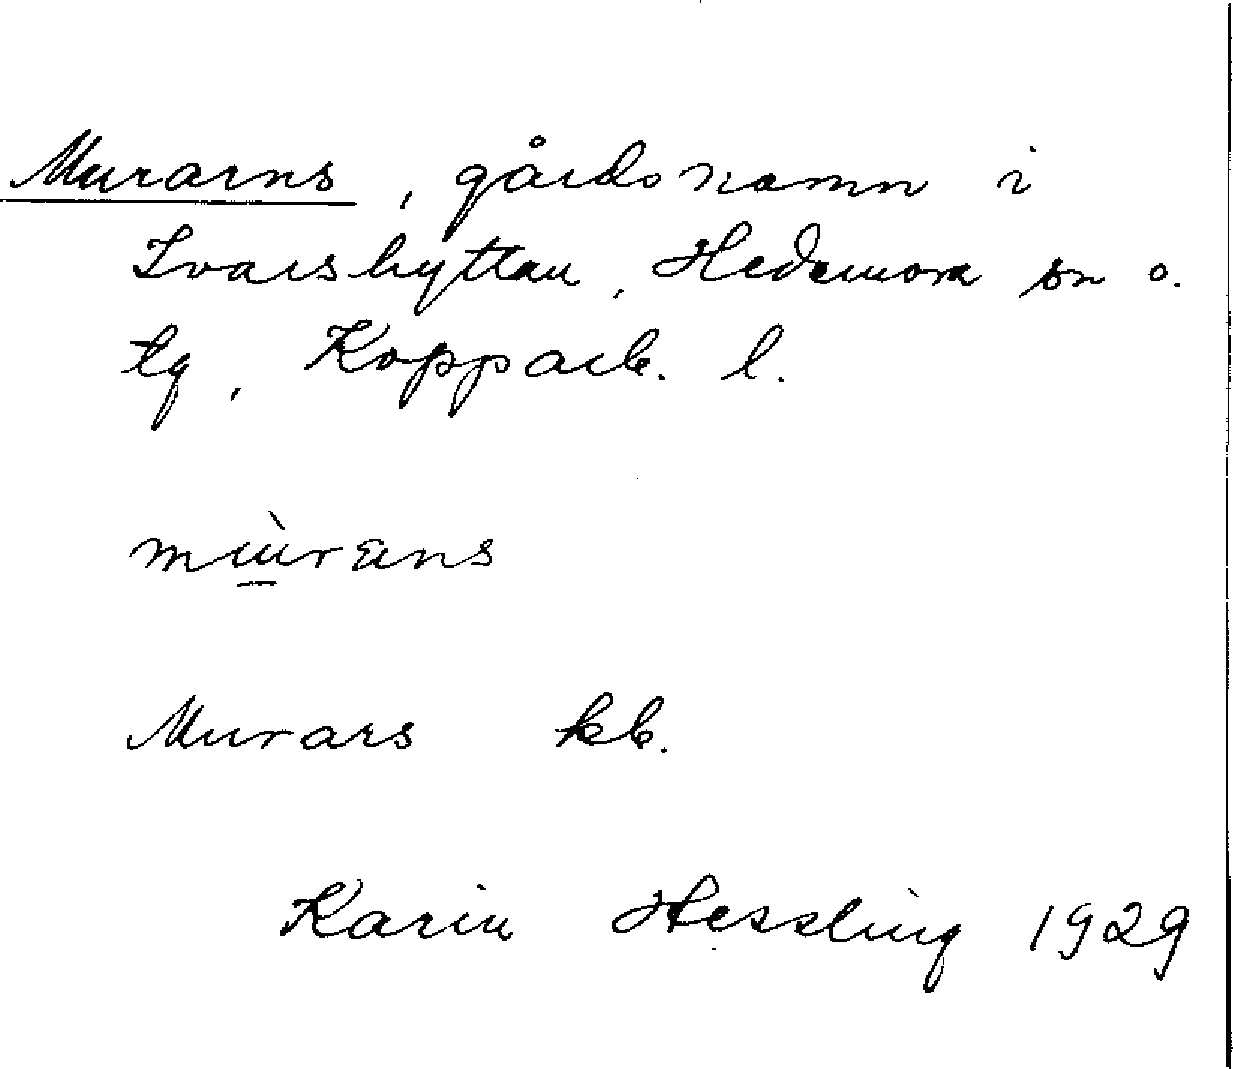 Murarns, gårdsnamn i
Ivarshyttan, Hedemora sn o.
tg, Kopparb. l.
mɯ̀rans
Murars kb.
Karin Hessling 1929